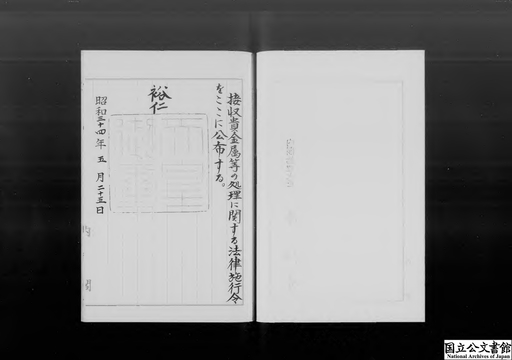 接収貴金属等の処理に関する法律施行令
をここに公布する。
裕仁
昭和三十四年五月二十五日
国立公文書館
National Archives of Japan